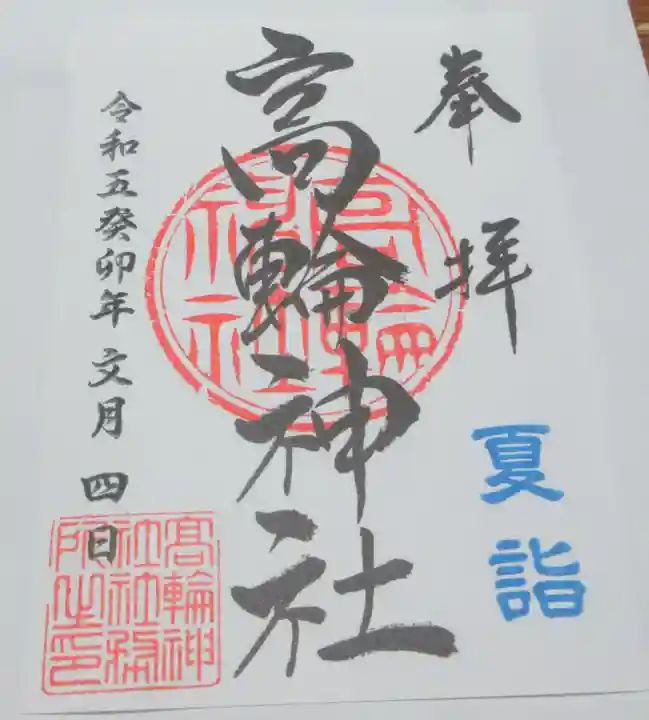 奉拝
夏詣
高輪神社
高輪神社
令和五癸卯年文月四日
髙輪神
社社務
所之印